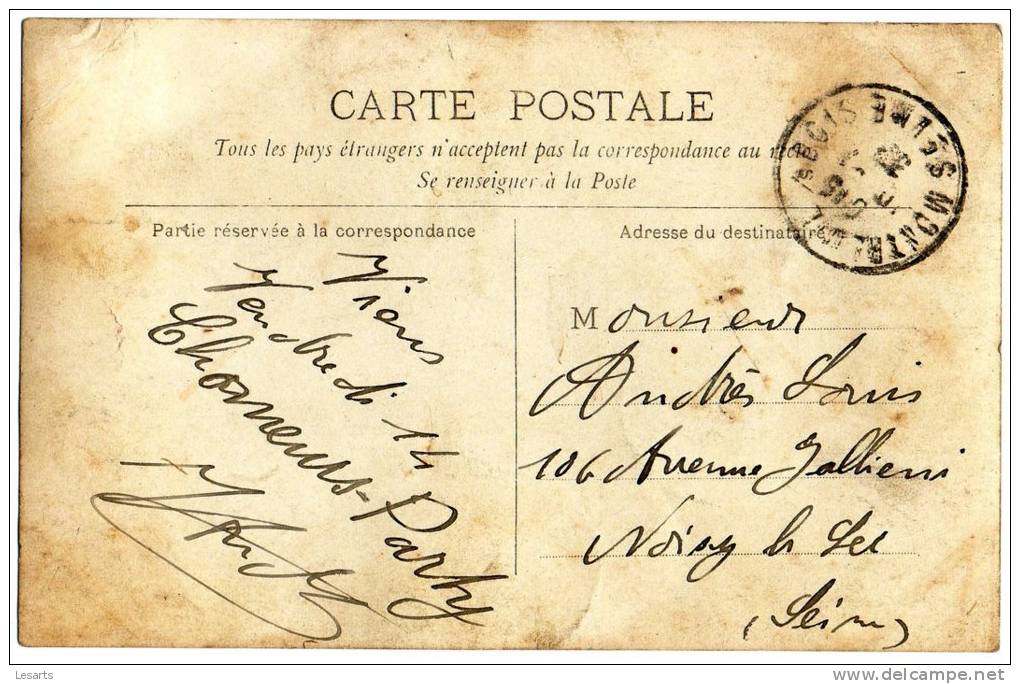 CARTE POSTALE
Tous les pays étrangers n'acceptent pas la correspondance au recto
Se renseigner à la Poste
Partie réservée à la correspondance
Viens
Vendredi 14
Chomeurs-Party
Adresse du destinataire
Monsieur
Andrès Louis
106 Avenue Gallieni
Noisy le Sec
(Seine)
MONTREUIL S BOIS SEINE
Lesarts
delcampe.net